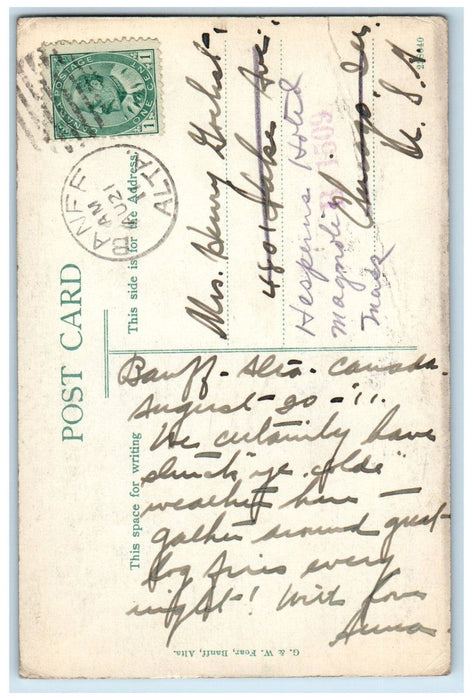 CANADA POSTAGE
1 ONE CENT 1
BANFF
AM
AU 21
11
ALTA.
POST CARD
This side is for the Address.
This space for writing
Mrs. Henry
4801 Lake Ave.
Chicago, Ill.
U. S. A.
Hesperus Hotel
Magnolia
Mass
1509
Banff - Alta. Canada.
August - 20 - '11.
We certainly have
struck "ye colde"
weather here -
gather around great
log fires every
night! With love
Anna
G. & W. Fear, Banff, Alta.